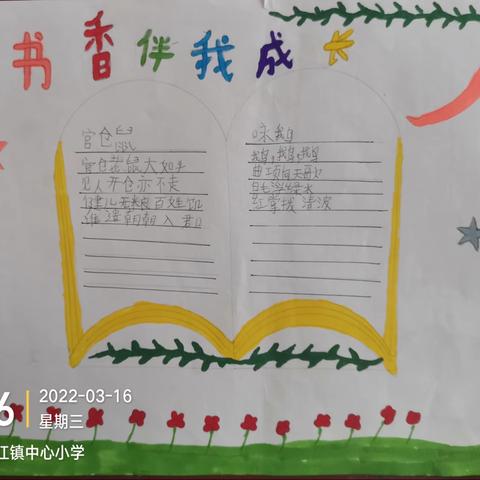 书香伴我成长
官仓鼠
官仓老鼠大如斗
见人开仓亦不走
健儿无粮百姓饥
谁遣朝朝入君口
咏鹅
鹅,鹅,鹅
曲项向天歌
白毛浮绿水
红掌拨清波
6
2022-03-16
星期三
江镇中心小学